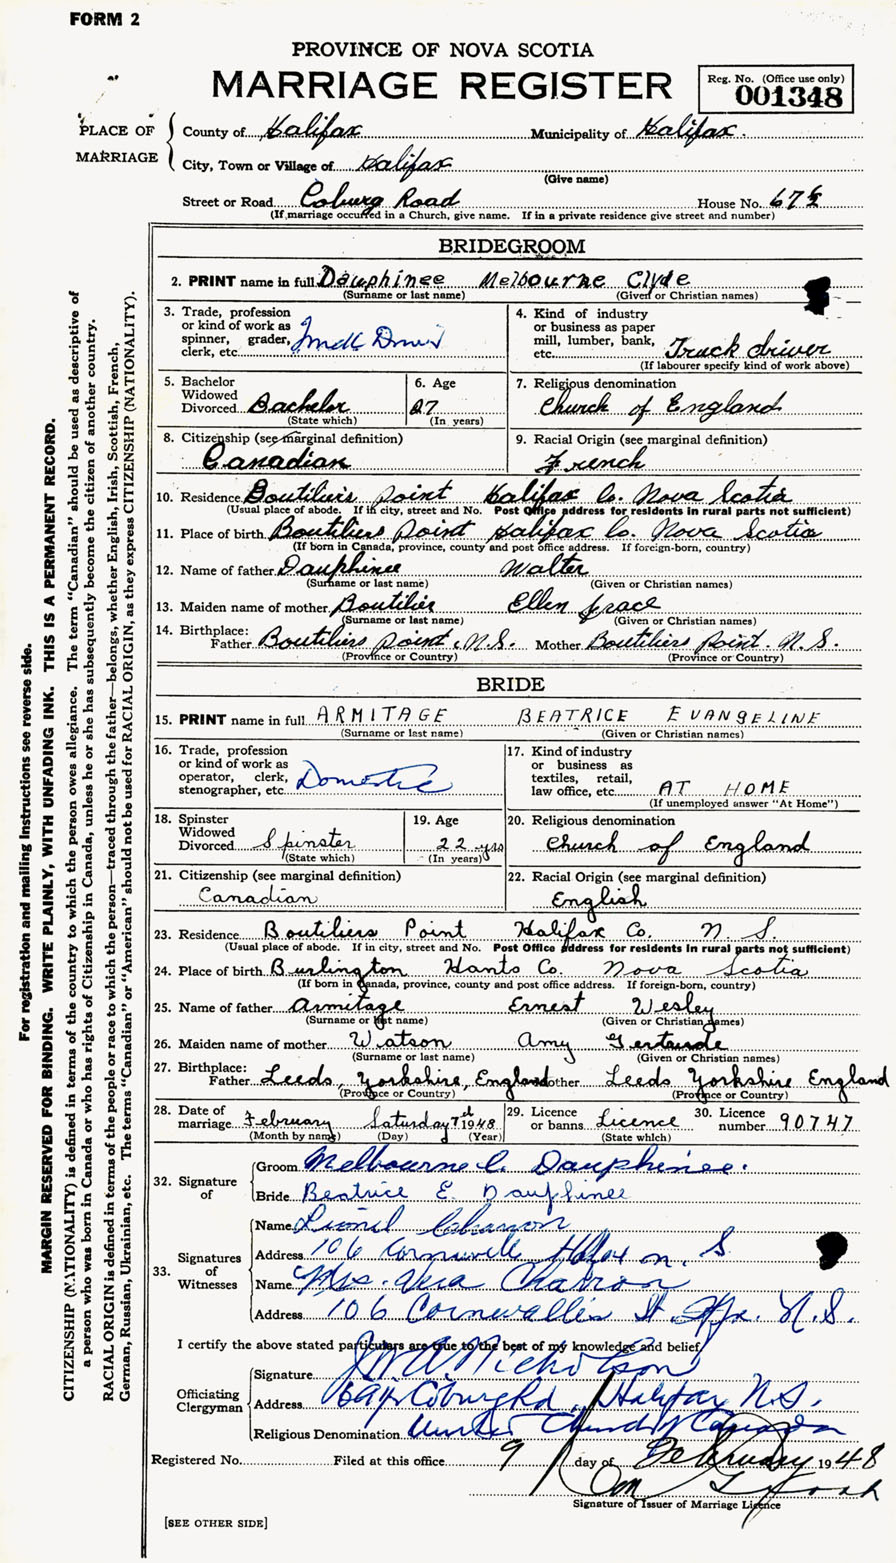 FORM 2
PROVINCE OF NOVA SCOTIA
MARRIAGE REGISTER
Reg. No. (Office use only)
001348
PLACE OF MARRIAGE
County of Halifax Municipality of Halifax.
City, Town or Village of Halifax
(Give name)
Street or Road Coburg Road House No. 67½
(If marriage occurred in a Church, give name. If in a private residence give street and number)
BRIDEGROOM
2. PRINT name in full Dauphinee Melbourne Clyde
(Surname or last name) (Given or Christian names)
3. Trade, profession
or kind of work as
spinner, grader,
clerk, etc.
4. Kind of industry
or business as paper
mill, lumber, bank,
etc. Truck driver
(If labourer specify kind of work above)
5. Bachelor
Widowed
Divorced Bachelor
(State which)
6. Age
27
(In years)
7. Religious denomination
Church of England
8. Citizenship (see marginal definition)
Canadian
9. Racial Origin (see marginal definition)
French
10. Residence Boutiliers Point Halifax Co. Nova Scotia
(Usual place of abode. If in city, street and No. Post Office address for residents in rural parts not sufficient)
11. Place of birth Boutiliers Point Halifax Co. Nova Scotia
(If born in Canada, province, county and post office address. If foreign-born, country)
12. Name of father Dauphinee Walter
(Surname or last name) (Given or Christian names)
13. Maiden name of mother Boutilier Ellen Grace
(Surname or last name) (Given or Christian names)
14. Birthplace:
Father Boutiliers Point, N.S. Mother Boutiliers Point. N.S.
(Province or Country) (Province or Country)
BRIDE
15. PRINT name in full ARMITAGE BEATRICE EVANGELINE
(Surname or last name) (Given or Christian names)
16. Trade, profession
or kind of work as
operator, clerk,
stenographer, etc. Domestic
17. Kind of industry
or business as
textiles, retail,
law office, etc. AT HOME
(If unemployed answer "At Home")
18. Spinster
Widowed
Divorced Spinster
(State which)
19. Age
22 yrs
(In years)
20. Religious denomination
Church of England
21. Citizenship (see marginal definition)
Canadian
22. Racial Origin (see marginal definition)
English
23. Residence Boutiliers Point Halifax Co. N. S.
(Usual place of abode. If in city, street and No. Post Office address for residents in rural parts not sufficient)
24. Place of birth Burlington Hants Co. Nova Scotia
(If born in Canada, province, county and post office address. If foreign-born, country)
25. Name of father Armitage Ernest Wesley
(Surname or last name) (Given or Christian names)
26. Maiden name of mother Watson Amy Gertrude
(Surname or last name) (Given or Christian names)
27. Birthplace:
Father Leeds, Yorkshire, England Mother Leeds Yorkshire England
(Province or Country) (Province or Country)
28. Date of
marriage February Saturday 7th 1948
(Month by name) (Day) (Year)
29. Licence
or banns Licence
(State which)
30. Licence
number 90747
32. Signature of
Groom Melbourne C. Dauphinee.
Bride Beatrice E. Dauphinee
33. Signatures of Witnesses
Name Lionel
Address 106 N. S
Name Mrs. Vera
Address 106 Cornwallis St. Hfx. N.S.
I certify the above stated particulars are true to the best of my knowledge and belief
Officiating Clergyman
Signature Nicholson
Address Coburg Rd, Halifax N.S.
Religious Denomination United Church of Canada
Registered No. Filed at this office 9 day of February 1948
Signature of Issuer of Marriage Licence
[SEE OTHER SIDE]
For registration and mailing instructions see reverse side.
MARGIN RESERVED FOR BINDING. WRITE PLAINLY, WITH UNFADING INK. THIS IS A PERMANENT RECORD.
CITIZENSHIP (NATIONALITY) is defined in terms of the country to which the person owes allegiance. The term "Canadian" should be used as descriptive of
a person who was born in Canada or who has rights of Citizenship in Canada, unless he or she has subsequently become the citizen of another country.
RACIAL ORIGIN is defined in terms of the people or race to which the person—traced through the father—belongs, whether English, Irish, Scottish, French,
German, Russian, Ukrainian, etc. The terms "Canadian" or "American" should not be used for RACIAL ORIGIN, as they express CITIZENSHIP (NATIONALITY).